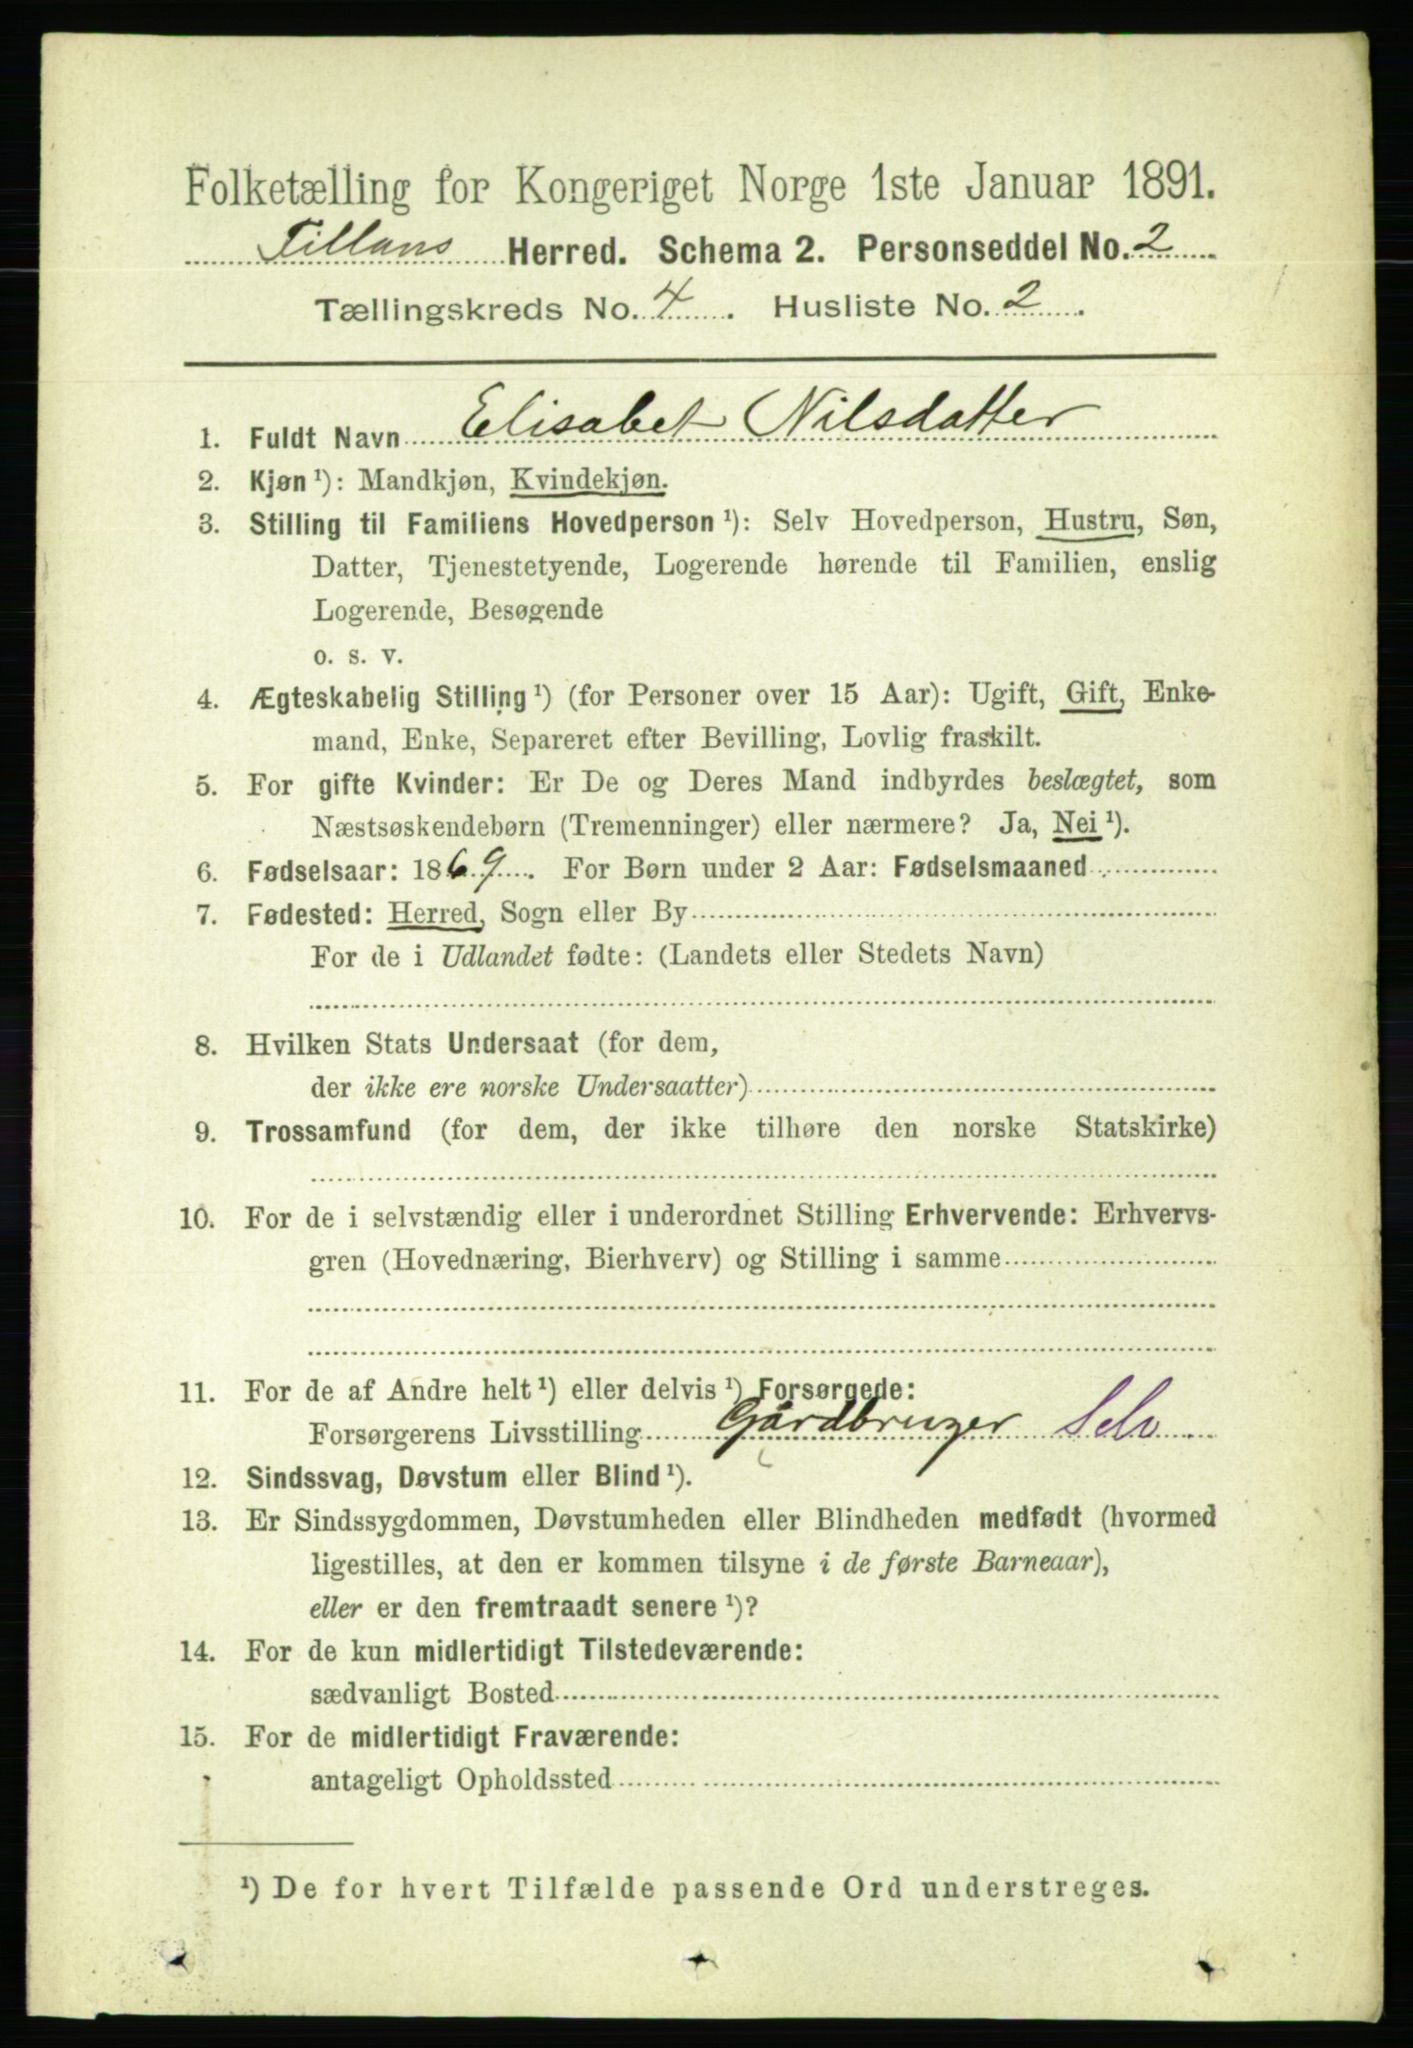 Folketælling for Kongeriget Norge 1ste Januar 1891.
Tillans Herred. Schema 2. Personseddel No. 2
Tællingskreds No. 4. Husliste No. 2.
1. Fuldt Navn Elisabet Nilsdatter
2. Kjøn ¹): Mandkjøn, Kvindekjøn.
3. Stilling til Familiens Hovedperson ¹): Selv Hovedperson, Hustru, Søn,
Datter, Tjenestetyende, Logerende hørende til Familien, enslig
Logerende, Besøgende
o. s. v.
4. Ægteskabelig Stilling ¹) (for Personer over 15 Aar): Ugift, Gift, Enke-
mand, Enke, Separeret efter Bevilling, Lovlig fraskilt.
5. For gifte Kvinder: Er De og Deres Mand indbyrdes beslægtet, som
Næstsøskendebørn (Tremenninger) eller nærmere? Ja, Nei ¹).
6. Fødselsaar: 1869. For Børn under 2 Aar: Fødselsmaaned
7. Fødested: Herred, Sogn eller By
For de i Udlandet fødte: (Landets eller Stedets Navn)
8. Hvilken Stats Undersaat (for dem,
der ikke ere norske Undersaatter)
9. Trossamfund (for dem, der ikke tilhøre den norske Statskirke)
10. For de i selvstændig eller i underordnet Stilling Erhvervende: Erhvervs-
gren (Hovednæring, Bierhverv) og Stilling i samme
11. For de af Andre helt ¹) eller delvis ¹) Forsørgede:
Forsørgerens Livsstilling Gårdbruger Selv
12. Sindssvag, Døvstum eller Blind ¹).
13. Er Sindssygdommen, Døvstumheden eller Blindheden medfødt (hvormed
ligestilles, at den er kommen tilsyne i de første Barneaar),
eller er den fremtraadt senere ¹)?
14. For de kun midlertidigt Tilstedeværende:
sædvanligt Bosted
15. For de midlertidigt Fraværende:
antageligt Opholdssted
¹) De for hvert Tilfælde passende Ord understreges.